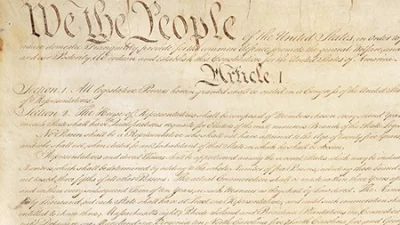 We the People of the United States, in Order
insure domestic Tranquility, provide for the common defence, promote the general Welfare
and our Posterity, do ordain and establish this Constitution for the United States of America.
Article I
Section. 1. All legislative Powers herein granted shall be vested in a Congress of the United States
of Representatives.
Section. 2. The House of Representatives shall be composed of Members chosen every second Year
in each State shall have Qualifications requisite for Electors of the most numerous Branch of the State
No Person shall be a Representative who shall not have attained to the Age of twenty five Years
and who shall not, when elected, be an Inhabitant of that State in which he shall be chosen.
Representatives and direct Taxes shall be apportioned among the several States which may be included
Numbers, which shall be determined by adding to the whole Number of free Persons
three fifths of all other Persons. The actual Enumeration shall be made within three Years
and within every subsequent Term of ten Years, in such Manner as they shall by Law direct. The Number
thirty Thousand, but each State shall have at Least one Representative; and until such enumeration shall
entitled to chuse three, Massachusetts eight, Rhode Island and Providence Plantations one